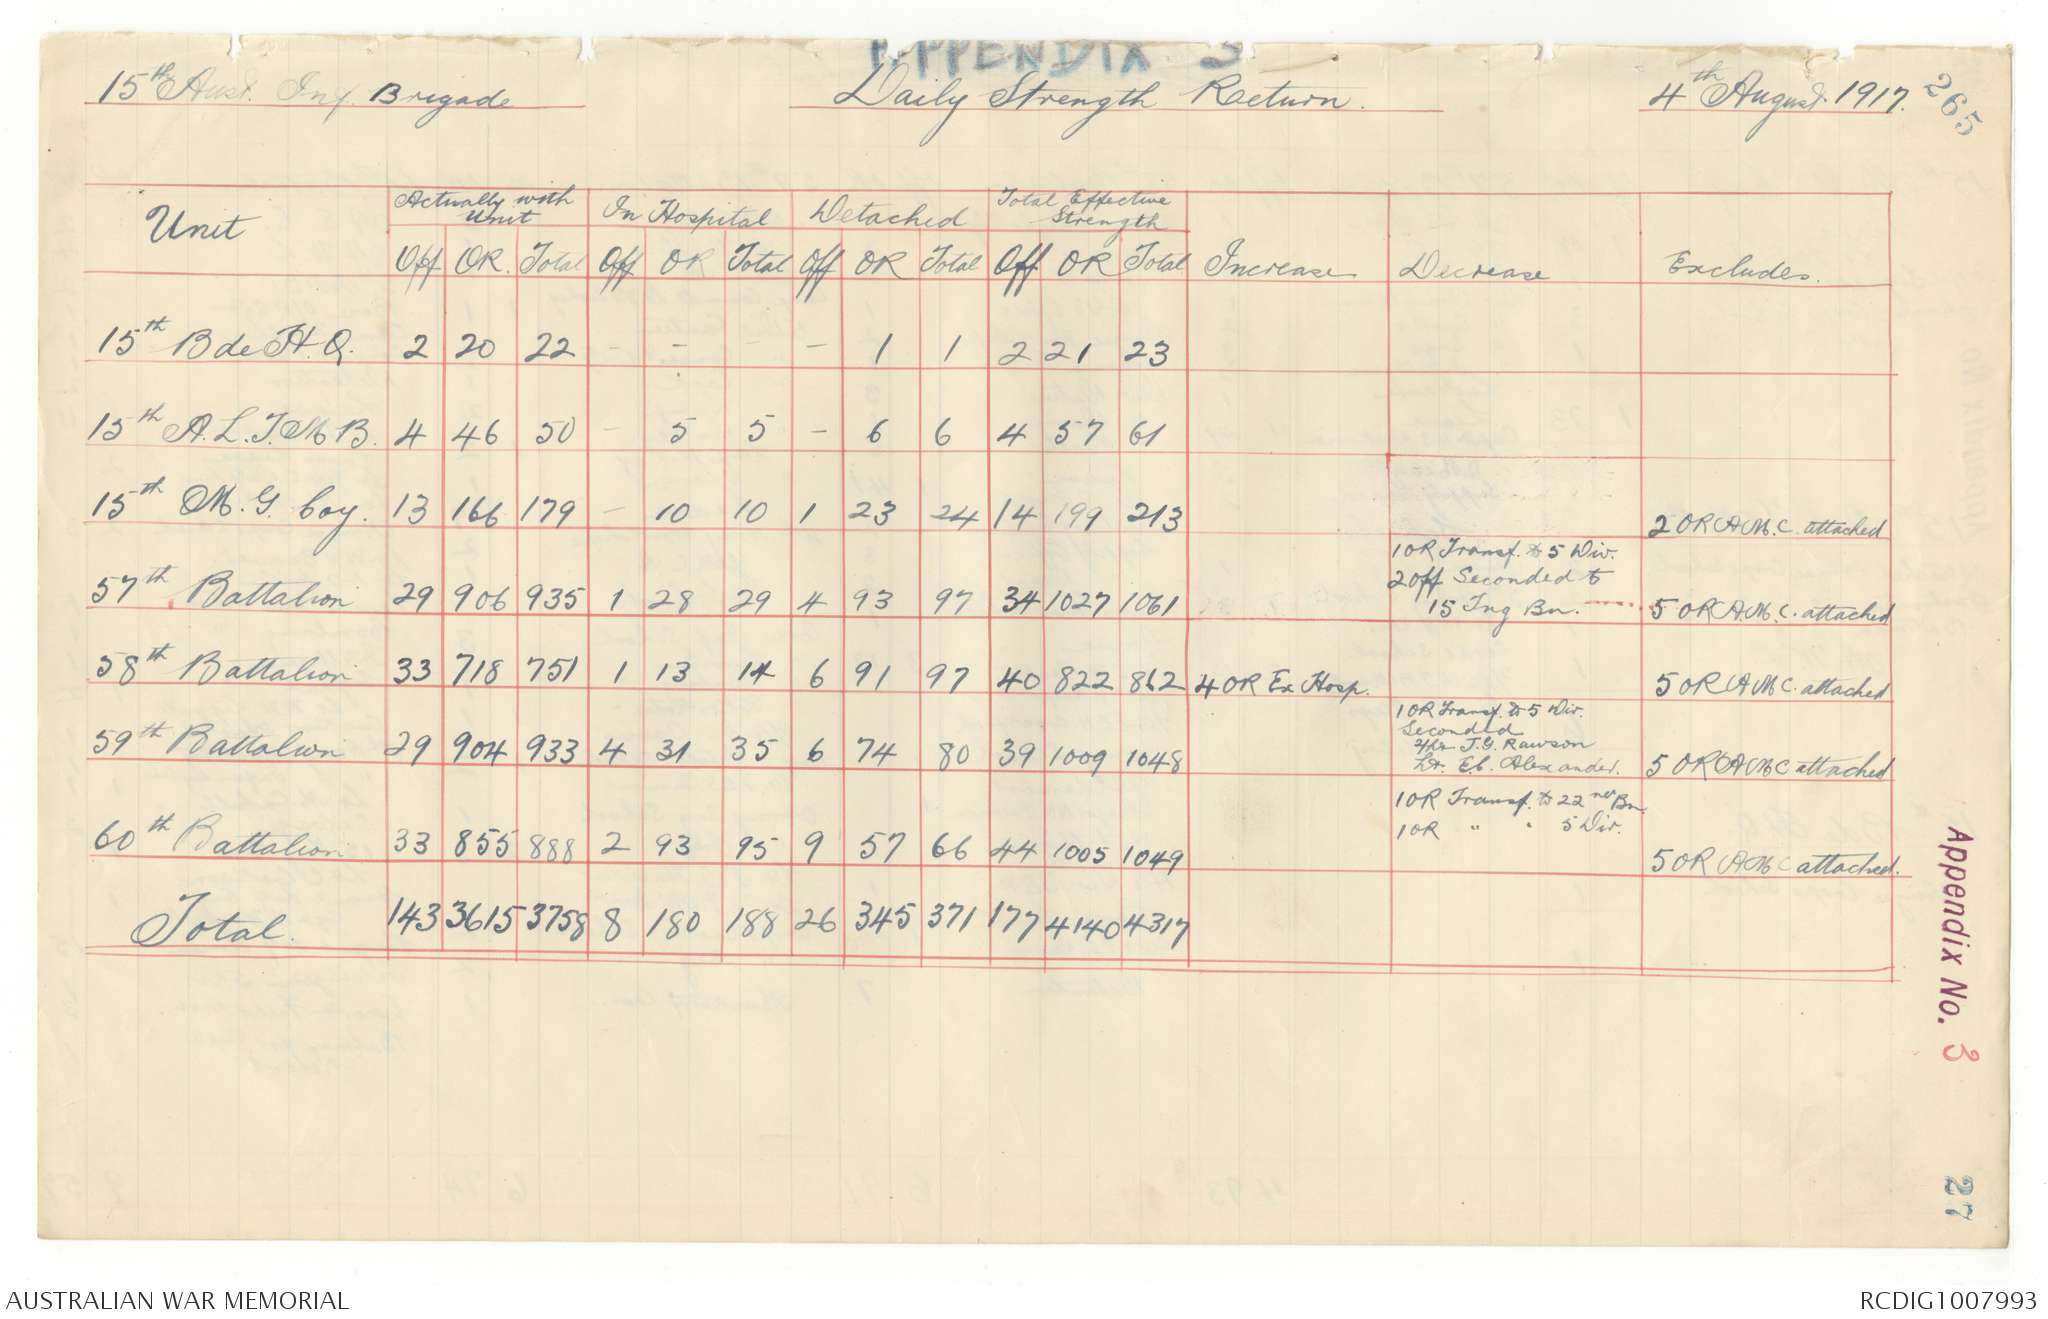 APPENDIX 3
15th Aust. Inf. Brigade Daily Strength Return. 4th August 1917. 265
Unit Actually with Unit In Hospital Detached Total Effective Strength Increase Decrease Excludes.
Off OR. Total Off OR Total Off OR Total Off OR Total
15th Bde H.Q. 2 20 22 - - - - 1 1 2 21 23
15th A.L.T.M.B. 4 46 50 - 5 5 - 6 6 4 57 61
15th M.G. Coy. 13 166 179 - 10 10 1 23 24 14 199 213 2 OR A.M.C. attached
1 OR Transf. to 5 Div.
2 Off Seconded to
57th Battalion 29 906 935 1 28 29 4 93 97 34 1027 1061 15 Tng Bn. 5 OR A.M.C. attached
58th Battalion 33 718 751 1 13 14 6 91 97 40 822 862 4 OR Ex Hosp. 5 OR A.M.C. attached
1 OR Transf. to 5 Div.
Seconded
J.G. Rawson
59th Battalion 29 904 933 4 31 35 6 74 80 39 1009 1048 Lt. E.C. Alexander. 5 OR A.M.C attached
1 OR Transf. to 22nd Bn.
1 OR " " 5 Div.
60th Battalion 33 855 888 2 93 95 9 57 66 44 1005 1049 5 OR A.M.C attached.
Total. 143 3615 3758 8 180 188 26 345 371 177 4140 4317
Appendix No. 3
27
AUSTRALIAN WAR MEMORIAL RCDIG1007993